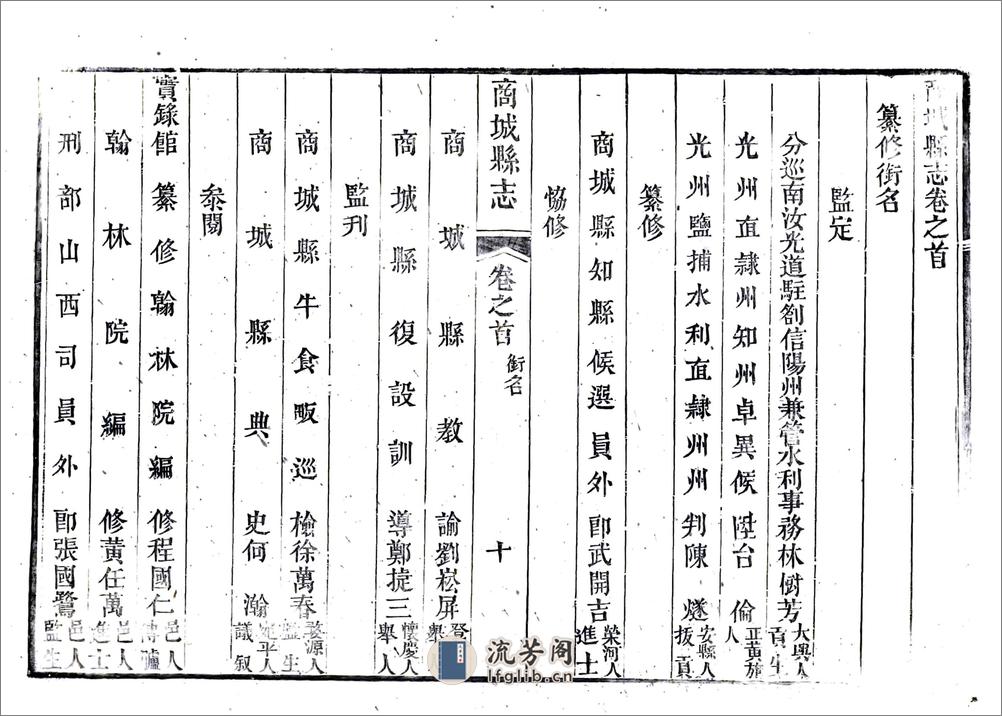 商城縣志卷之首
纂修銜名
監定
分巡南汝光道駐劄信陽州兼管水利事務林樹芳大興人貢生
光州直隸州知州卓異候陞台倫正黃旂人
光州鹽捕水利直隸州州判陳燧安縣人拔貢
纂修
商城縣知縣候選員外郎武開吉榮河人進士
恊修
商城縣志 卷之首 銜名 十
商城縣教諭劉崧屏登
商城縣復設訓導鄭㨗三懷慶人舉人
監刊
商城縣牛食畈巡檢徐萬春婺源人監生
商城縣典史何瀚延平人議叙
叅閱
實錄館纂修翰林院編修程國仁邑人傳臚
翰林院編修黃任萬邑人進士
刑部山西司員外郎張國鷺邑人監生
流芳阁
lfglib.cn